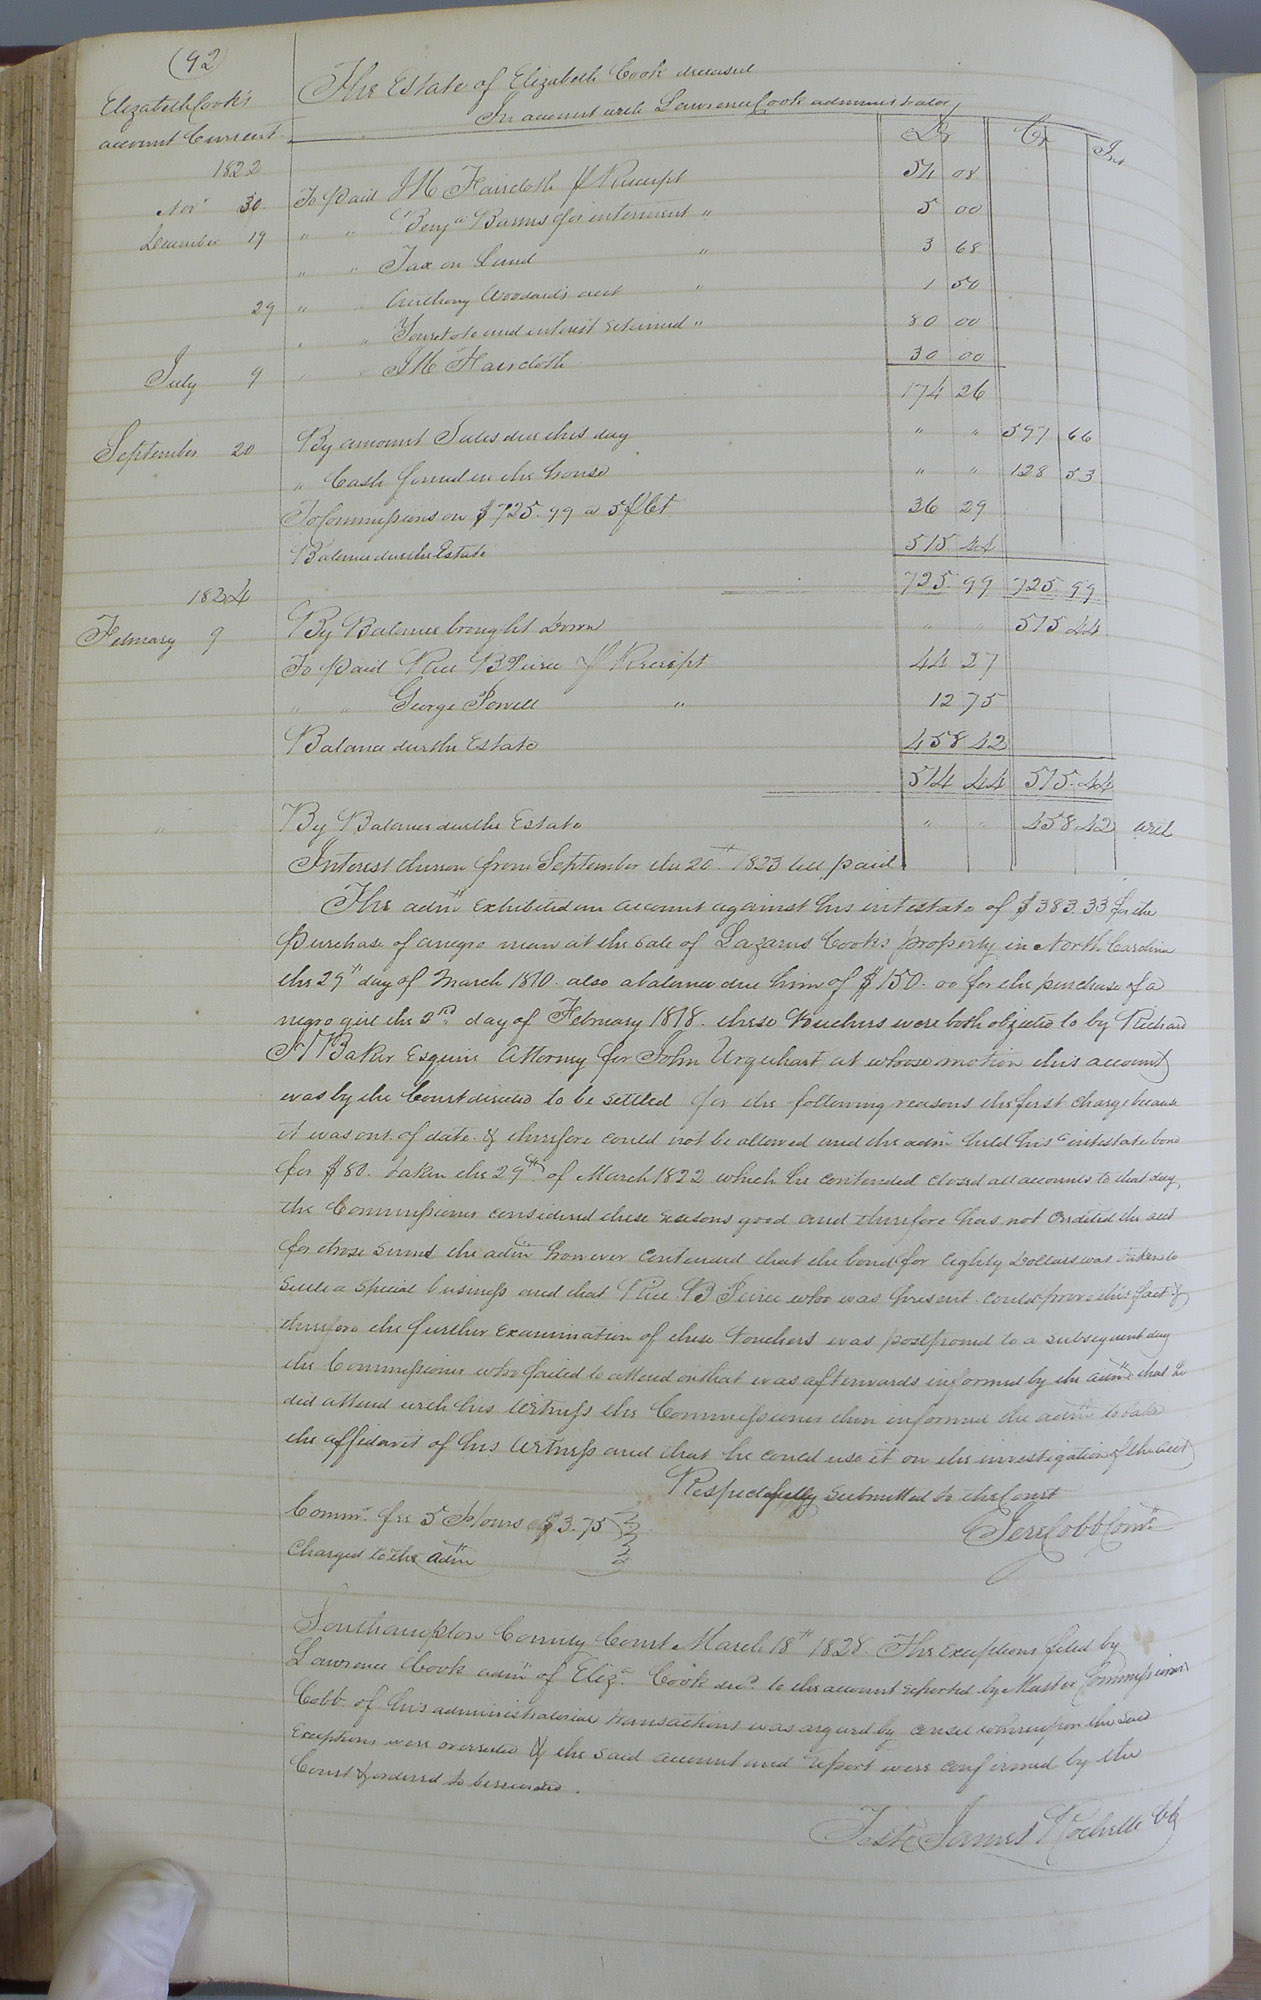 (92)
Elizabeth Cook's
account Current
The Estate of Elizabeth Cook deceased
In account with Lawrence Cook administrator
Dr Cr Int
1822
Novr 30 To paid J M Faircloth p Receipt 54 08
December 19 " " Benja Barns for interment " 5 00
" " Tax on Land " 3 68
29 " " Anthony Woodard's acct " 1 50
" " Your note and interest retained " 80 00
July 9 " " J M Faircloth 30 00
174 26
September 20 By amount Sales due this day " " 597 66
" Cash found in the house " " 128 53
To Commissions on $725.99 a 5 p Ct 36 29
Balance due the Estate 515 44
725.99 725.99
1824
February 9 By Balance brought Down " 515 44
To paid Rice B Pierce p Receipt 44 27
" " George Powell " 12 75
Balance due the Estate 458 42
514 44 515.44
" By Balance due the Estate " " 458 42 with
Interest thereon from September the 20th 1823 till paid
The admr exhibited an account against his intestate of $383.33 for the
purchase of a negro man at the sale of Lazarus Cook's property in North Carolina
the 29th day of March 1810. also a balance due him of $150.00 for the purchase of a
negro girl the 2nd day of February 1818. these Vouchers were both objected to by Richard
H Baker Esquire Attorney for John Urquhart at whose motion this account
was by the Court directed to be settled for the following reasons the first charge because
it was out of date & therefore could not be allowed and the admr held his intestate bond
for $80. taken the 29th of March 1822 which he contended closed all accounts to that day
the Commissioner considered these reasons good and therefore has not Credited the acct
for those sums the admr however contended that the bond for Eighty Dollars was taken to
settle a special business and that Rice B Pierce who was present could prove this fact &
therefore the further Examination of these Vouchers was postponed to a subsequent day
the Commissioner who failed to attend on that was afterwards informed by the admr that he
did attend with his Witness the Commissioner then informed the admr to take
the affidavit of his Witness and that he could use it on the investigation of the acct
Respectfully Submitted to the Court
Jere Cobb Comr
Commr fee 5 Hours $3.75
Charged to the admr
Southampton County Court March 18th 1828. The exceptions filed by
Lawrence Cook admr of Eliza Cook decd to the account reported by Master Commissioner
Cobb of his administratorial transactions was argued by whereupon the said
Exceptions were overruled & the said account and report were confirmed by the
Court & ordered to be recorded.
Teste James Rochelle CC